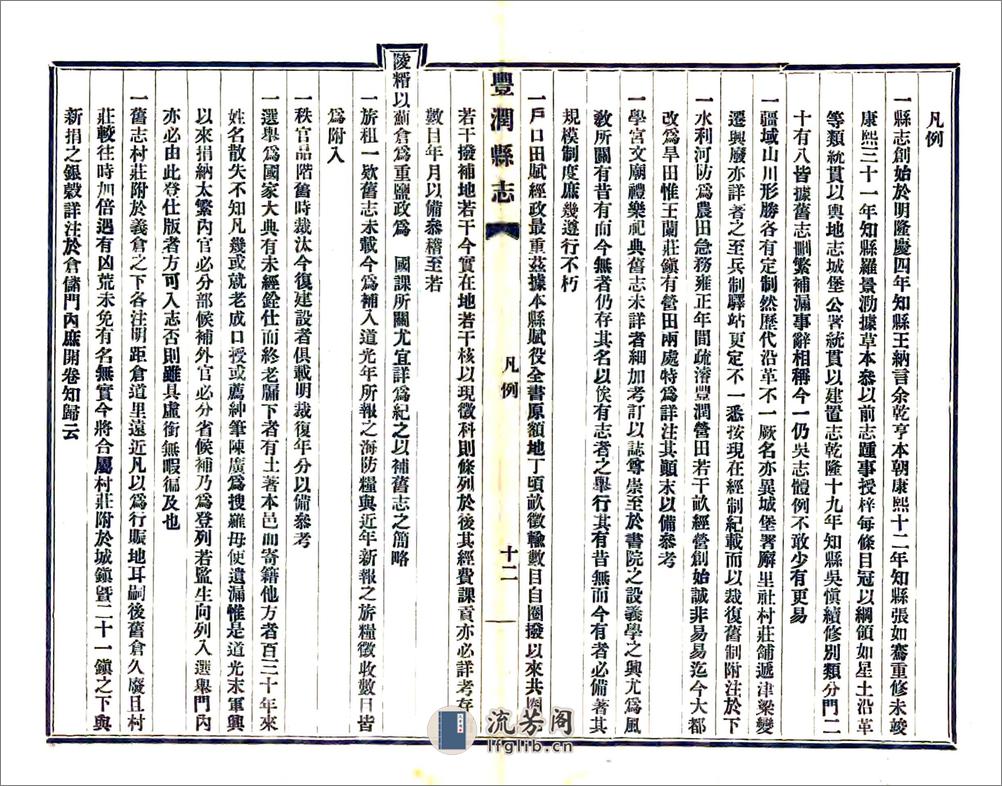 凡例
一縣志創始於明隆慶四年知縣王納言余乾亨本朝康熙十二年知縣張如騫重修未竣
康熙三十一年知縣羅景泐據草本參以前志踵事授梓每條目冠以綱領如星土沿革
等類統貫以輿地志城堡公署統貫以建置志乾隆十九年知縣吳愼續修別類分門二
十有八皆據舊志刪繁補漏事辭相稱今一仍吳志體例不敢少有更易
一疆域山川形勝各有定制然歷代沿革不一厥名亦異城堡署廨里社村莊舖遞津梁變
遷興廢亦詳著之至兵制驛站更定不一悉按現在經制紀載而以裁復舊制附注於下
一水利河防爲農田急務雍正年間疏濬豐潤營田若干畝經營創始誠非易易迄今大都
改爲旱田惟王蘭莊鎭有營田兩處特爲詳注其顚末以備參考
一學宮文廟禮樂祀典舊志未詳者細加考訂以誌尊崇至於書院之設義學之興尤爲風
敎所關有昔有而今無者仍存其名以俟有志者之舉行其有昔無而今有者必備著其
規模制度庶幾遵行不朽
一戶口田賦經政最重茲據本縣賦役全書原額地丁頃畝徵輸數目自圈撥以來共圈
若干撥補地若干今實在地若干核以現徵科則條列於後其經費課貢亦必詳考存
數目年月以備參稽至若
陵糈以薊倉爲重鹽政爲 國課所關尤宜詳爲紀之以補舊志之簡略
一旂租一欵舊志未載今爲補入道光年所報之海防糧與近年新報之旂糧徵收數目皆
爲附入
一秩官品階舊時裁汰今復建設者俱載明裁復年分以備參考
一選舉爲國家大典有未經銓仕而終老牖下者有土著本邑而寄籍他方者百三十年來
姓名散失不知凡幾或就老成口授或薦紳筆陳廣爲搜羅毋使遺漏惟是道光末軍興
以來捐納太繁內官必分部候補外官必分省候補乃爲登列若監生向列入選舉門內
亦必由此登仕版者方可入志否則雖具虛銜無暇徧及也
一舊志村莊附於義倉之下各注明距倉道里遠近凡以爲行賑地耳嗣後舊倉久廢且村
莊較往時加倍遇有凶荒未免有名無實今將合屬村莊附於城鎭曁二十一鎭之下與
新捐之銀穀詳注於倉儲門內庶開卷知歸云
豐潤縣志
凡例
十二
流芳阁
lfglib.cn